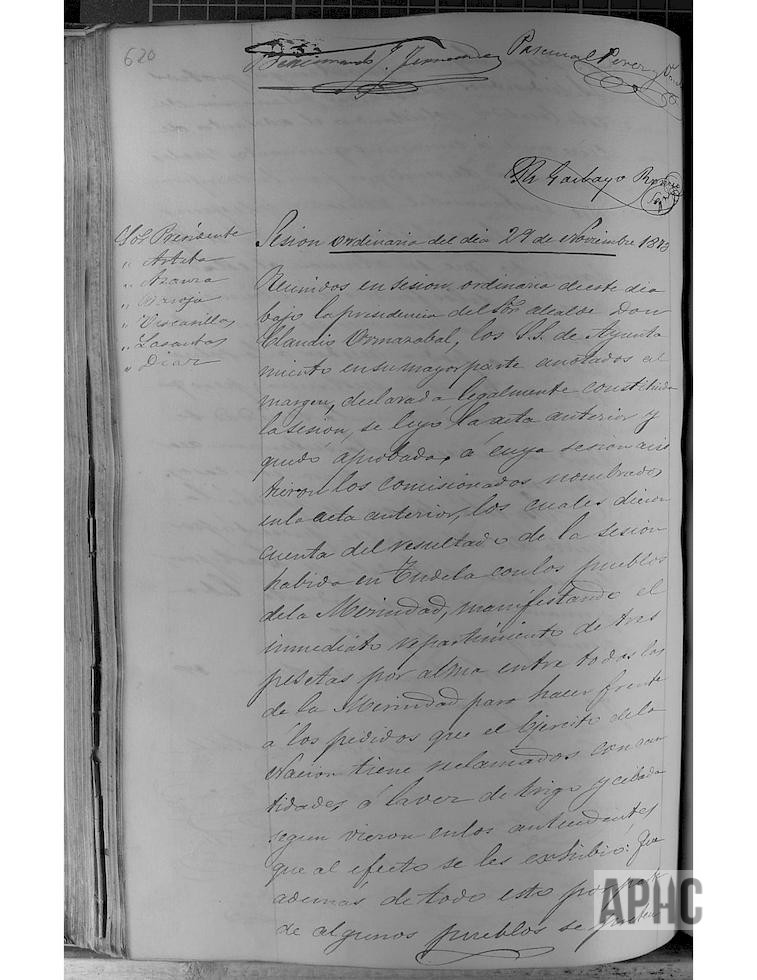 620
Pascual Perez y
R Garbayo
Sesion ordinaria del dia 29 de Noviembre 1873
Sor Presidente
" Arteta
" Azanza
" Baroja
" Viscarillas
" Lasantas
" Diaz
Reunidos en sesion ordinaria de este dia
bajo la presidencia del Sor alcalde Don
Claudio Ormazabal, los S.S. de Ayunta
miento en su mayor parte anotados al
margen, declarada legalmente constituida
la sesion, se leyó la acta anterior y
quedó aprobada, a cuya sesion asis
tieron los comisionados nombrados
en la acta anterior, los cuales dieron
cuenta del resultado de la sesion
habida en Tudela con los pueblos
de la Merindad, manifestando el
inmediato repartimiento de tres
pesetas por alma entre todos los
de la Merindad para hacer frente
á los pedidos que el Ejercito de la
Nacion tiene reclamados con can
tidades á la vez de trigo y cebada
segun vieron en los antecedentes
que al efecto se les exhibió: Que
además de todo esto por parte
de algunos pueblos se
APHC